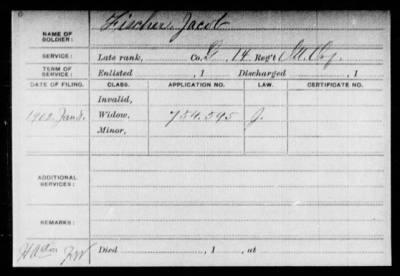 Fischer, Jacob
NAME OF SOLDIER:
SERVICE: Late rank, Co. G, 14 Reg't
TERM OF SERVICE: Enlisted , 1 Discharged , 1
DATE OF FILING. CLASS. APPLICATION NO. LAW. CERTIFICATE NO.
Invalid,
1902, Widow, 754.595
Minor,
ADDITIONAL SERVICES:
REMARKS:
Died , 1 , at